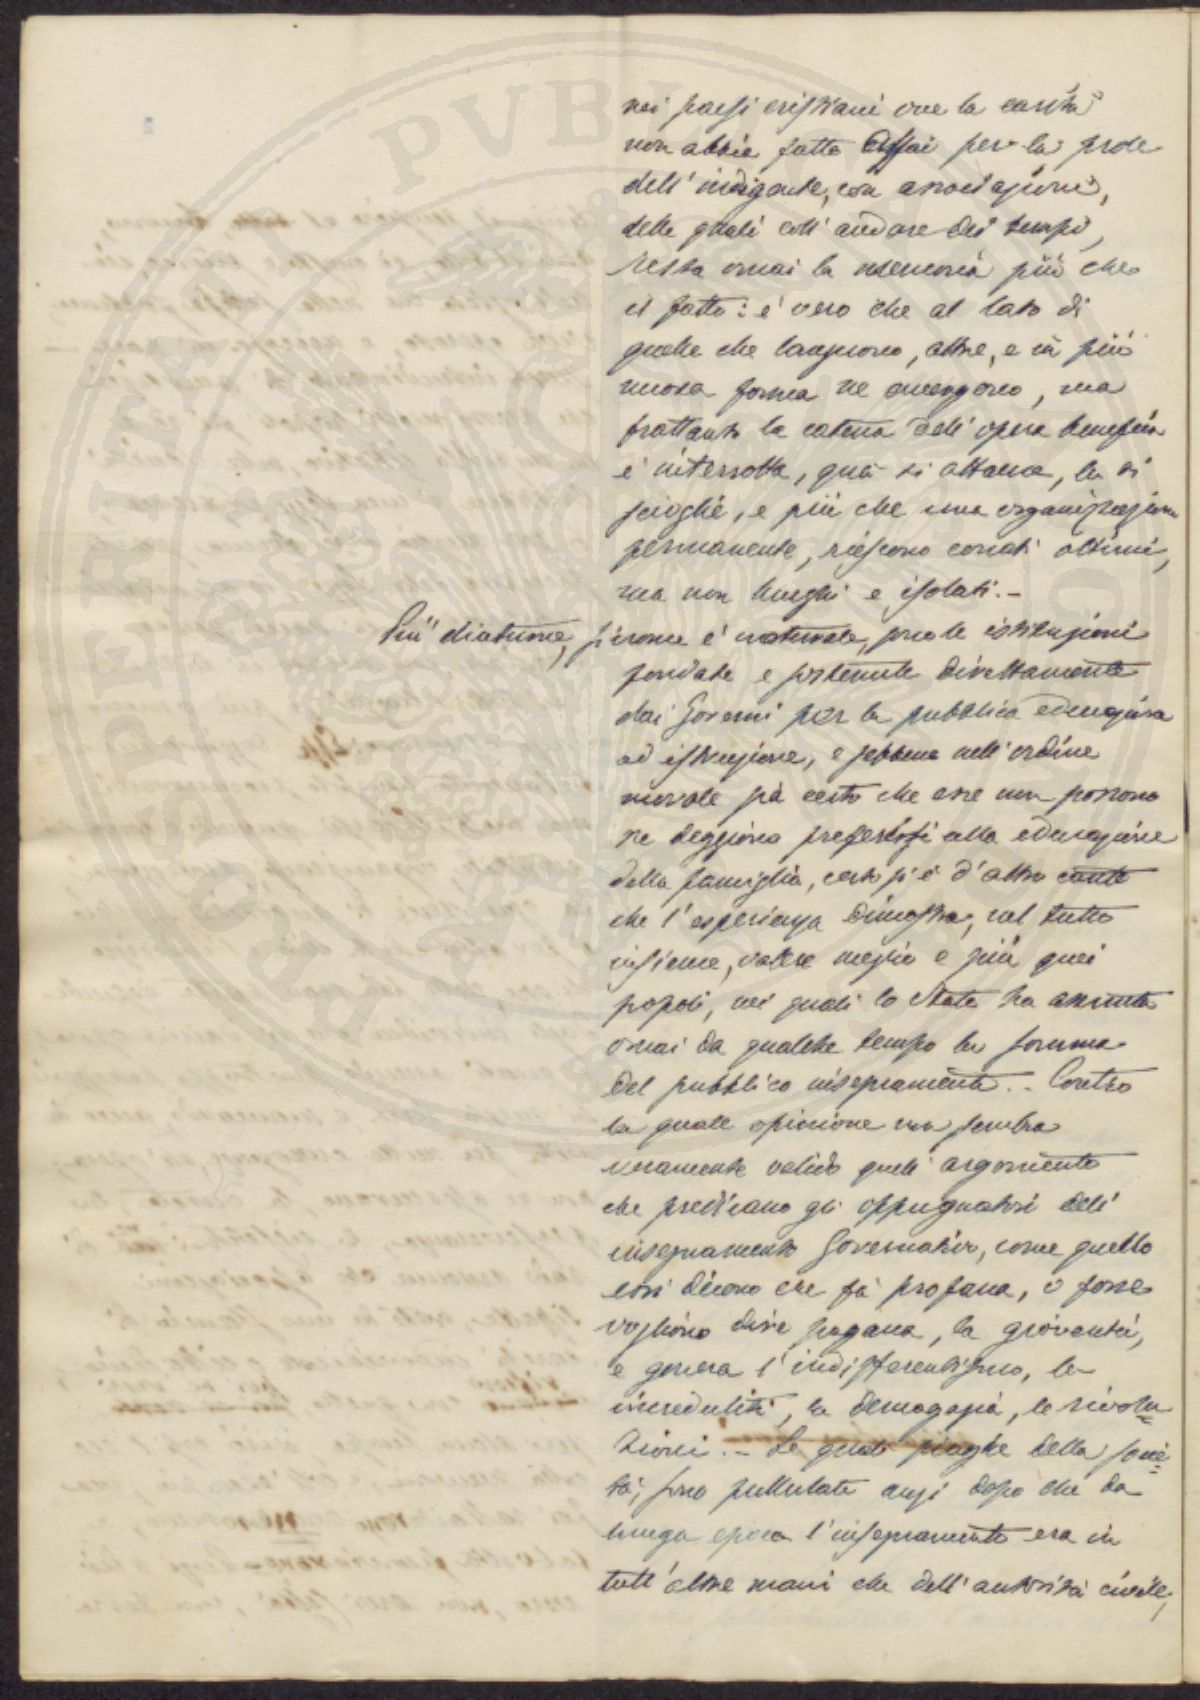 nei paesi cristiani ove la carità
non abbia fatto assai per la prole
dell'indigente, con associazioni,
delle quali coll'andare dei tempi,
resta omai la memoria più che
il fatto: è vero che al lato di
quelle che languono, altre, e in più
nuova forma ne emergono, ma
frattanto la catena dell'opera benefica
è interrotta, quà si attacca, là si
scioglie, e più che una organizzazione
permanente, riescono conati ottimi,
ma non lunghi e isolati. -
Più diuturne, siccome è naturale, sono le istituzioni
fondate e sostenute direttamente
dai Governi per la pubblica educazione
ed istruzione, e sebbene nell'ordine
morale sia certo che esse non possono
ne deggiono preferirsi alla educazione
della famiglia, certo si è d'altro canto
che l'esperienza dimostra, nel tutto
insieme, valere meglio e più quei
popoli, nei quali lo Stato ha assunto
omai da qualche tempo la somma
del pubblico insegnamento. - Contro
la quale opinione non sembra
veramente valido quell'argomento
che predicano gli oppugnatori dell'
insegnamento Governativo, come quello
essi dicono che fà profana, o forse
vogliono dire pagana, la gioventù,
e genera l'indifferentismo, la
incredulità, la demagogia, le rivolu=
zioni. - Le quali piaghe della socie=
tà, sono pullulate anzi dopo che da
lunga epoca l'insegnamento era in
tutt'altre mani che dell'autorità civile,
PVBLICAE
PROSPERITATI